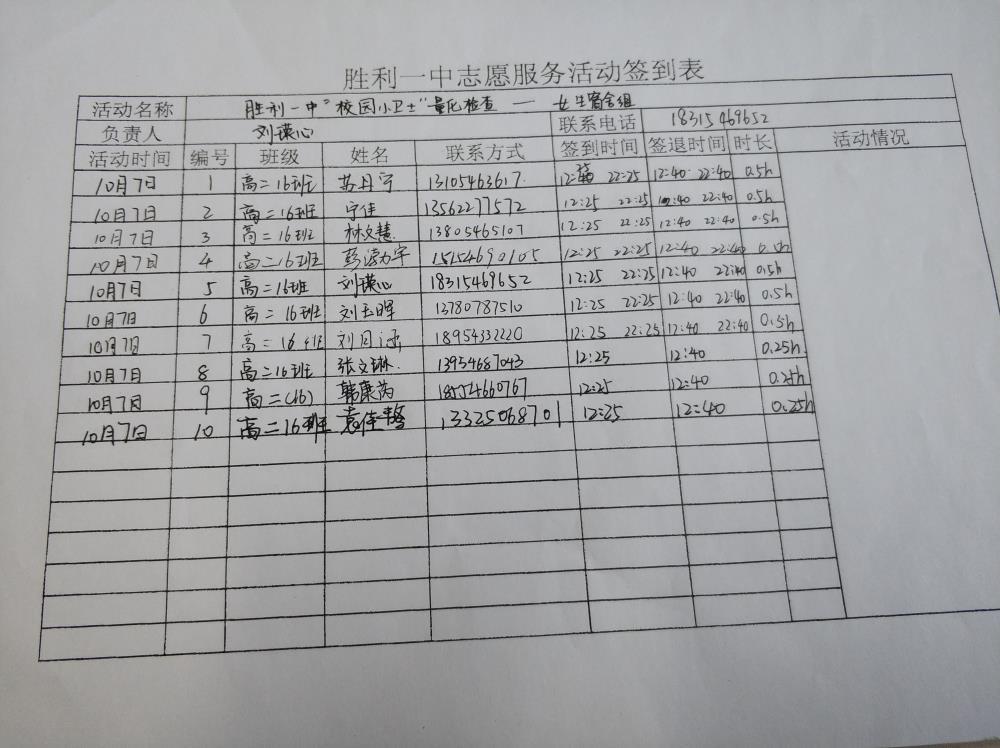 胜利一中志愿服务活动签到表
活动名称 胜利一中"校园小卫士"量化检查 — 女生宿舍组
负责人 刘瑛心 联系电话 18315469652
活动时间 编号 班级 姓名 联系方式 签到时间 签退时间 时长 活动情况
10月7日 1 高二16班 13105463617. 12: 22:25 12:40 22:40 0.5h
10月7日 2 高二16班 宁佳 13562277572 12:25 22:25 12:40 22:40 0.5h
10月7日 3 高二16班 林文慧 13805465107 12:25 22:25 12:40 22:40 0.5h
10月7日 4 高二16班 15154690105 12:25 22:25 12:40 22:40 0.5h
10月7日 5 高二16班 刘瑛心 18315469652 12:25 22:25 12:40 22:40 0.5h
10月7日 6 高二16班 刘玉晖 13780787510 12:25 22:25 12:40 22:40 0.5h
10月7日 7 高二16班 刘月涵 18954333220 12:25 22:25 12:40 22:40 0.5h
10月7日 8 高二16班 张文琳. 13954687043 12:25 12:40 0.25h
10月7日 9 高二(16) 韩康芮 18554660767 12:25 12:40 0.25h
10月7日 10 高二16班 13325068701 12:25 12:40 0.25h